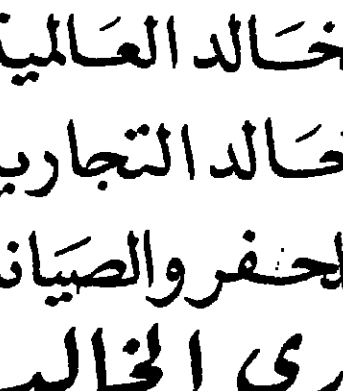 خالد العالمية
خالد التجاري
لحفر والصيان
ري الخالد